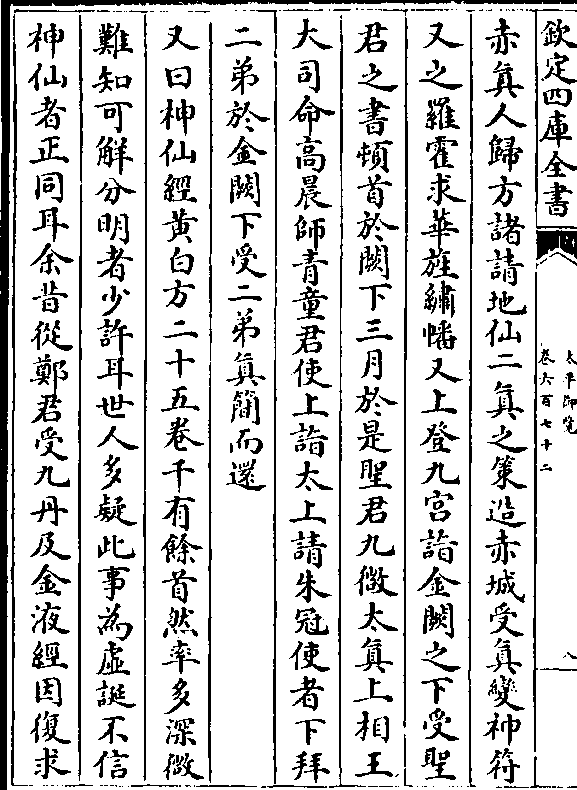 欽定四庫全書
太平御覽
卷六百七十二
八
赤真人歸方諸請地仙二真之策造赤城受真變神符
又之羅霍求華旌繡幡又上登九宮詣金闕之下受聖
君之書頓首於闕下三月於是聖君九微太真上相王
大司命高晨師青童君使上詣太上請朱冠使者下拜
二弟於金闕下受二弟真簡而還
又曰神仙經黃白方二十五卷千有餘首然率多深微
難知可解分明者少許耳世人多疑此事為虛誕不信
神仙者正同耳余昔從鄭君受九丹及金液經因復求